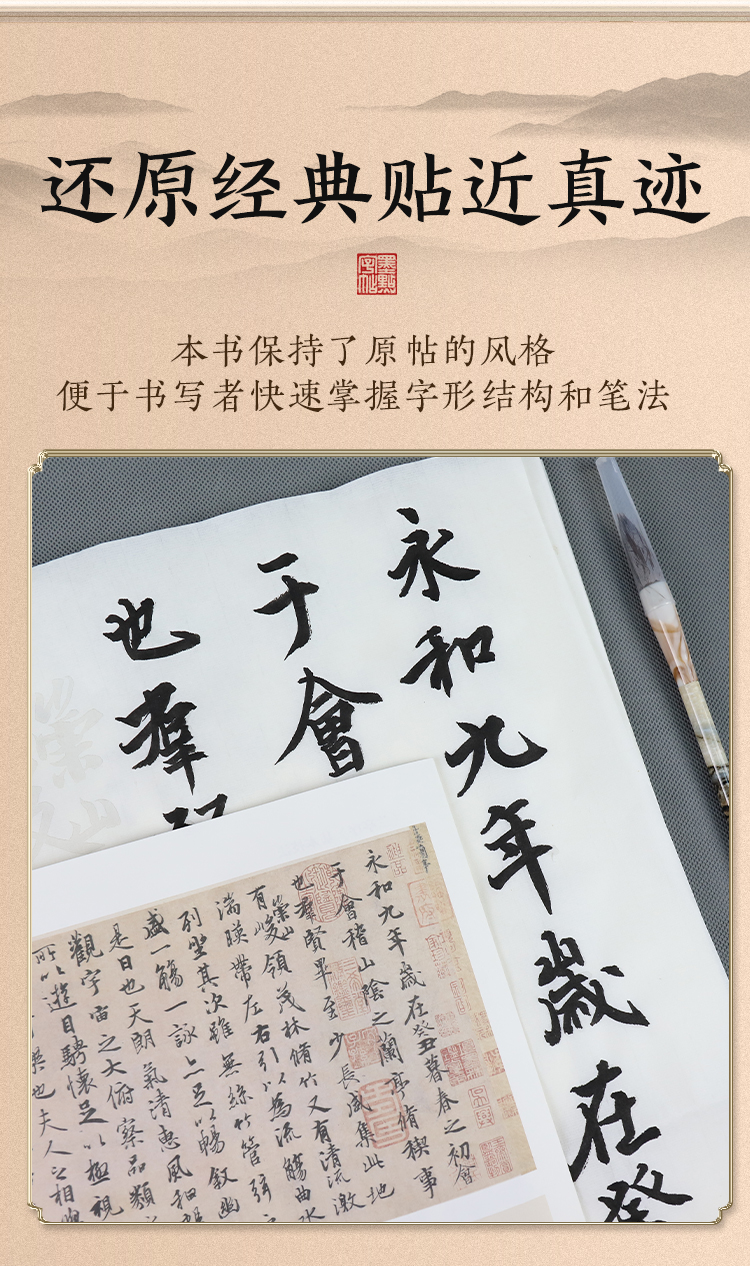 还原经典贴近真迹
墨點字帖
本书保持了原帖的风格
便于书写者快速掌握字形结构和笔法
永和九年歲在癸
于會
也羣
永和九年歲在癸丑暮春之初會
于會稽山陰之蘭亭脩稧事
也羣賢畢至少長咸集此地
有崇山峻領茂林脩竹又有清流激
湍暎帶左右引以為流觴曲水
列坐其次雖無絲竹管弦
盛一觴一詠亦足以暢敘幽
是日也天朗氣清惠風和暢
觀宇宙之大俯察品類
所以遊目騁懷足以極視
也夫人之相與